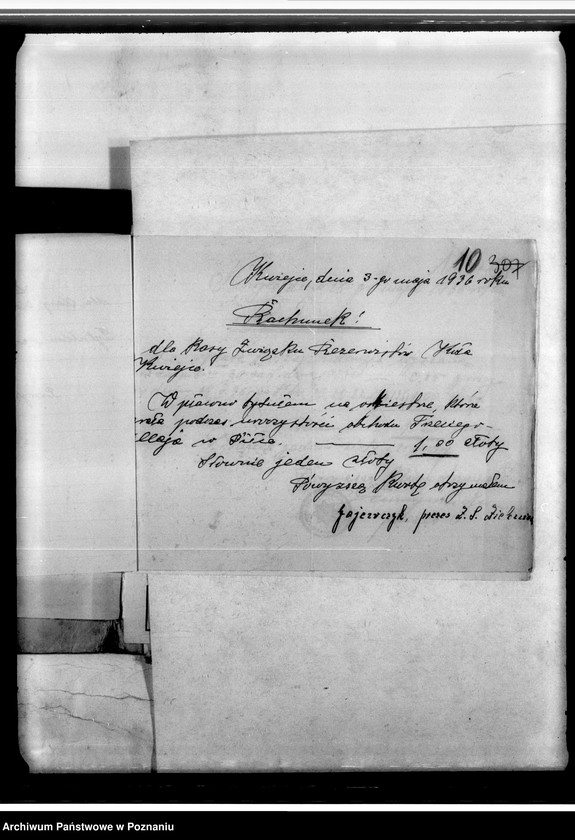 10 307
Kwiejce, dnia 3-go maja 1936 roku
Rachunek!
dla Kasy Związku Rezerwistów Koła
Kwiejce.
W płacono tytułem na orkiestrę, która
grała podczas uroczystości obchodu Trzeciego-
Maja w
1,00 złoty
Słownie jeden złoty
Powyższą kwotę otrzymałem
prezes Z. S.
Archiwum Państwowe w Poznaniu